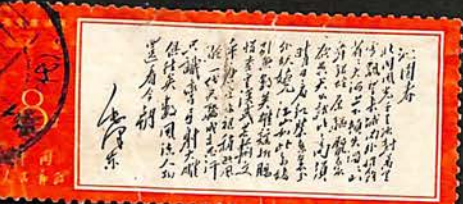 沁园春
北国风光千里冰封万里
雪飘望长城内外惟余莽
莽大河上下顿失滔滔山
舞银蛇原驰腊象欲
与天公试比高须
晴日看红装素裹
分外妖娆江山如此多娇
引无数英雄竞折腰
惜秦皇汉武略输文
采唐宗宋祖稍逊风
骚一代天骄成吉思汗
只识弯弓射大雕
俱往矣数风流人物
还看今朝
毛泽东
8